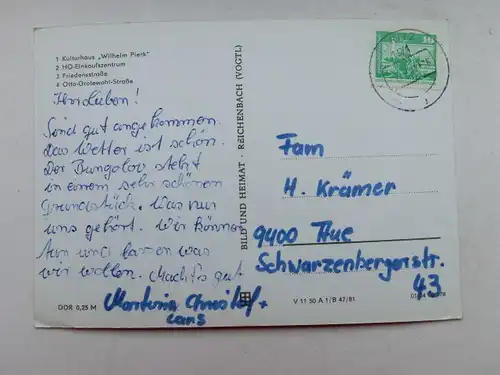 1 Kulturhaus „Wilhelm Pieck"
2 HO-Einkaufszentrum
3 Friedensstraße
4 Otto-Grotewohl-Straße
Ihr Lieben!
Sind gut angekommen.
Das Wetter ist schön.
Der Bungalow steht
in einem sehr schönen
Grundstück. Was nur
uns gehört. Wir können
tun und lassen was
wir wollen. Machts gut
Martina +
Lars
DDR 0,25 M
BILD UND HEIMAT · REICHENBACH (VOGTL)
V 11 50 A 1/B 47/81
10
Fam
H. Krämer
9400 Aue
Schwarzenbergerstr.
43